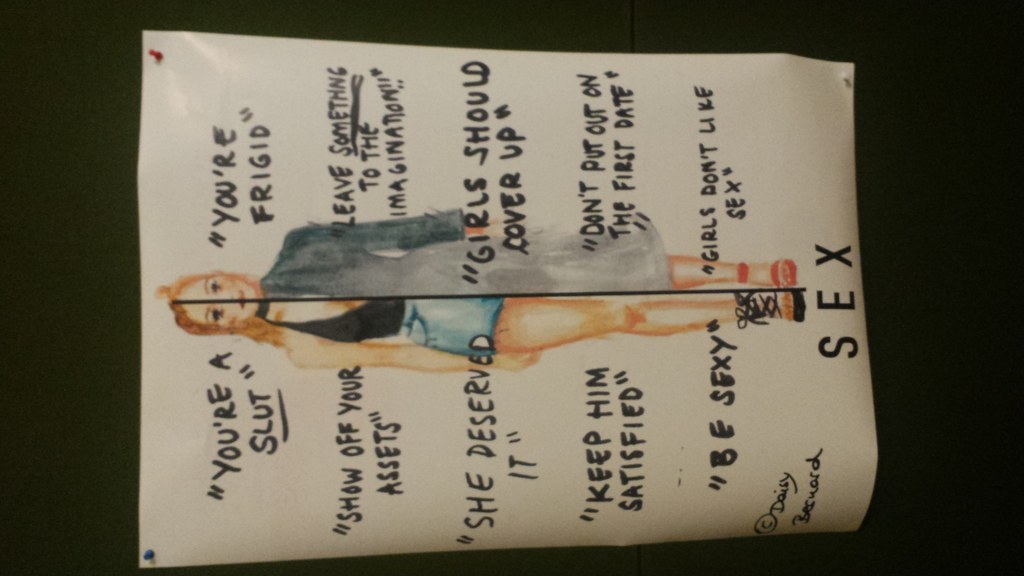 "YOU'RE A
SLUT"
"YOU'RE
FRIGID"
"SHOW OFF YOUR
ASSETS"
"LEAVE SOMETHNG
TO THE
IMAGINATION!!"
"SHE DESERVED
IT"
"GIRLS SHOULD
COVER UP"
"KEEP HIM
SATISFIED"
"DON'T PUT OUT ON
THE FIRST DATE"
"BE SEXY"
"GIRLS DON'T LIKE
SEX"
©Daisy
Bernard
SEX